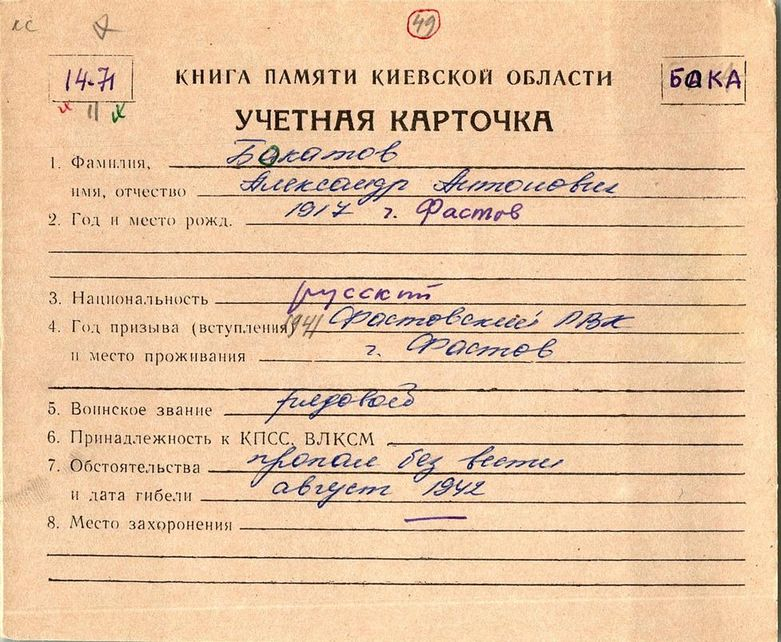 49
14-71
КНИГА ПАМЯТИ КИЕВСКОЙ ОБЛАСТИ
БАКА
УЧЕТНАЯ КАРТОЧКА
1. Фамилия, Бакатов
имя, отчество Александр Антонович
2. Год и место рожд. 1917 г. Фастов
3. Национальность русский
4. Год призыва (вступления) 1941 Фастовский РВК
и место проживания г. Фастов
5. Воинское звание рядовой
6. Принадлежность к КПСС, ВЛКСМ
7. Обстоятельства пропал без вести
и дата гибели август 1942
8. Место захоронения —